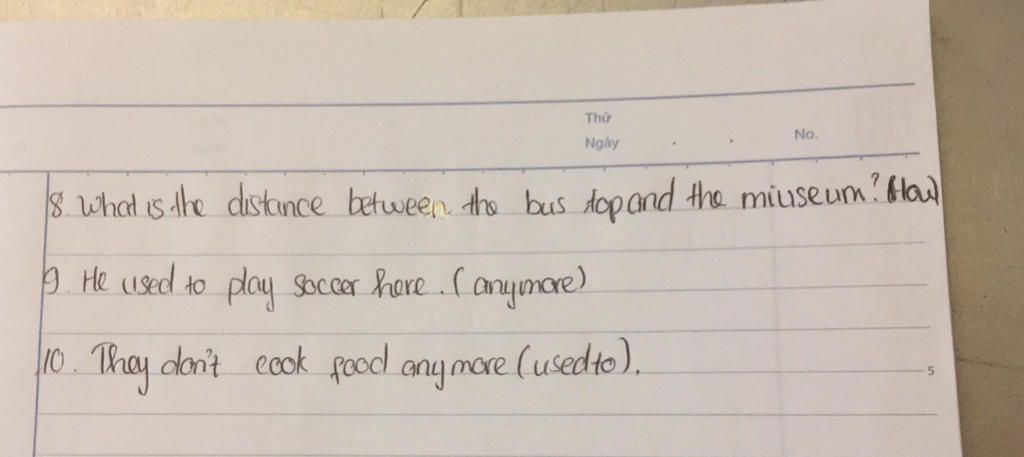 Thứ
Ngày . . No.
8. What is the distance between the bus stop and the miuseum? (How)
9. He used to play soccer here. (anymore)
10. They don't cook food anymore (used to).
5